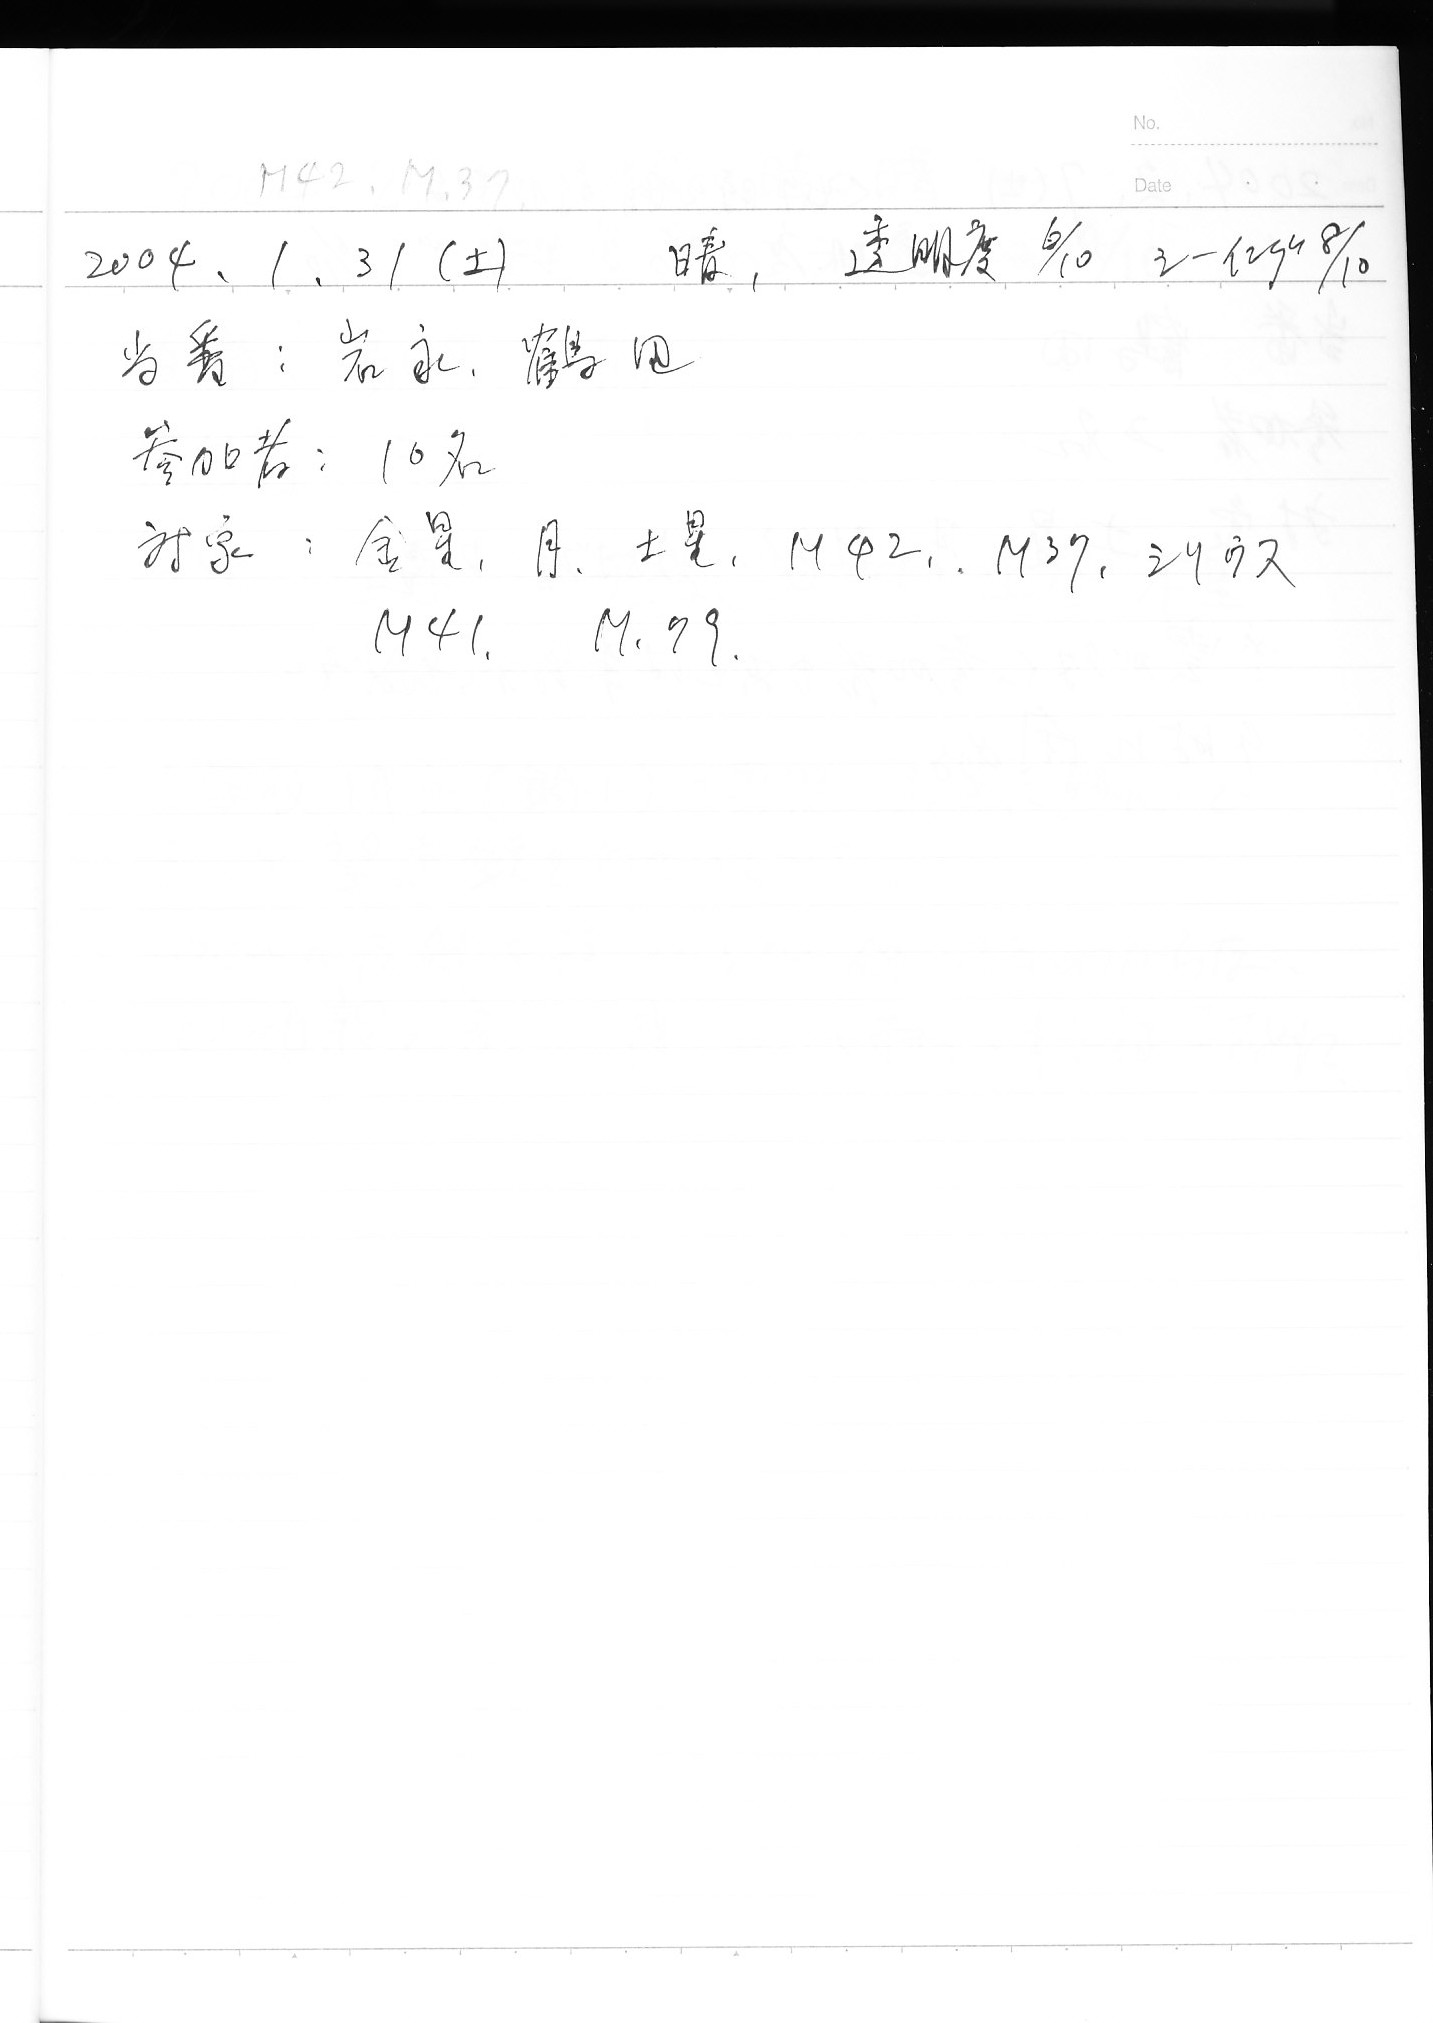 No.
M42. M.37.
Date
2004、1、31(土) 晴, 透明度 6/10 シーイング 8/10
当番:岩永、鶴田
参加者:10名
対象:金星、月、土星、M42、. M37、シリウス
M41. M.79.